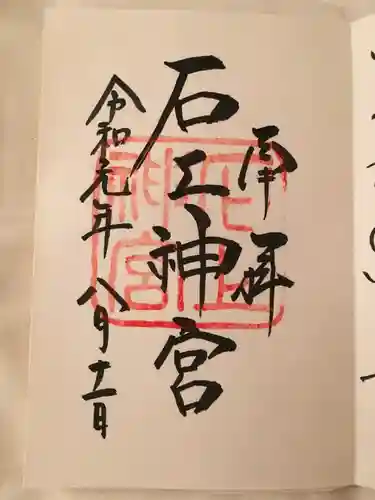 奉拝
石上神宮
令和元年八月十一日
石上
神宮